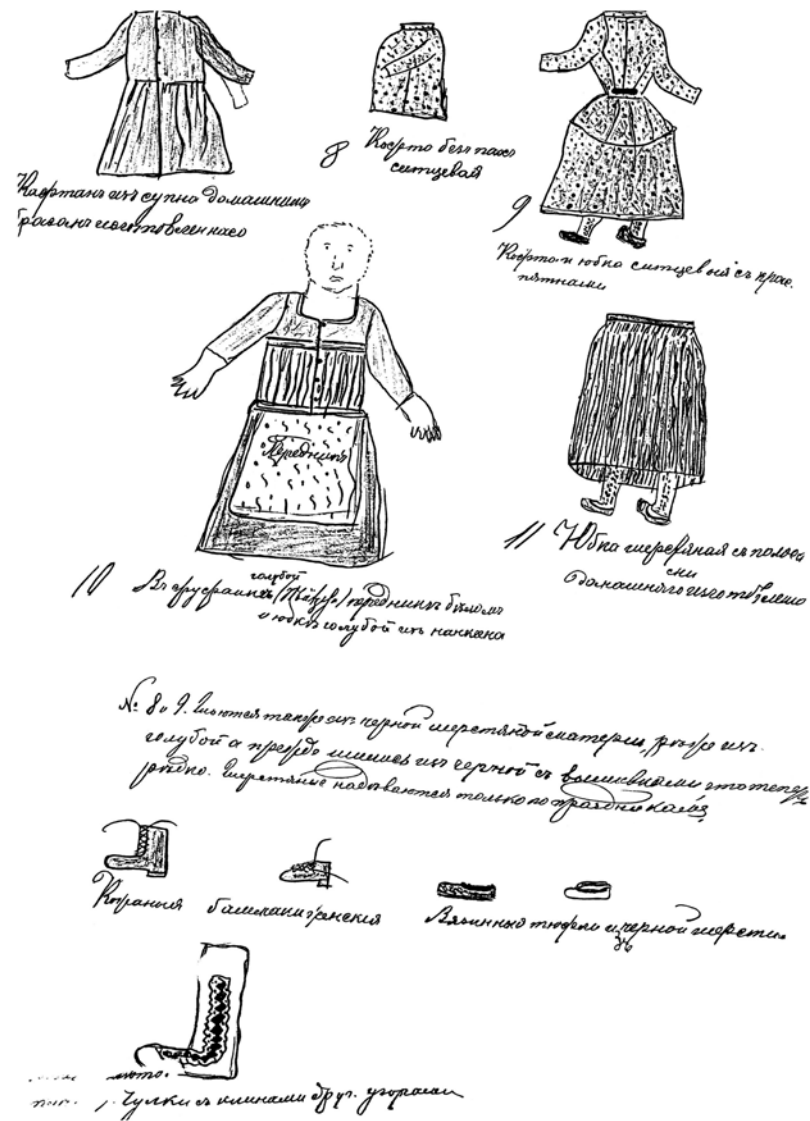 Кафтанъ изъ сукна домашнимъ
8 Кофта безъ пояс
ситцевая
9
Кофта и юбка ситцевыя съ крас.
пятнами
Передникъ
голубой
10 передникъ бѣлом
и юбкѣ голубой изъ нанкина
11 Юбка шерстяная съ полоса
ми
домашняго изготовлению
№ 8 и 9. Шьются также изъ черной шерстяной матеріи, рѣже изъ
голубой а прежде шились изъ черной съ вышивками это теперь
рѣдко. Шерстяные надѣваются только по праздникамъ
Кожаныя башмаки женскія
Вязанныя туфли изъ черной шерсти
Чулки съ клинами друг. узорами